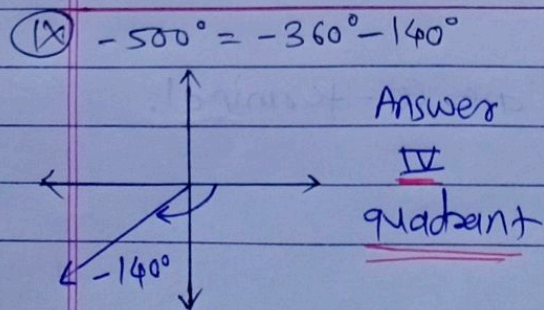 (ix) -500° = -360° - 140°
Answer
IV
quadrant
-140°